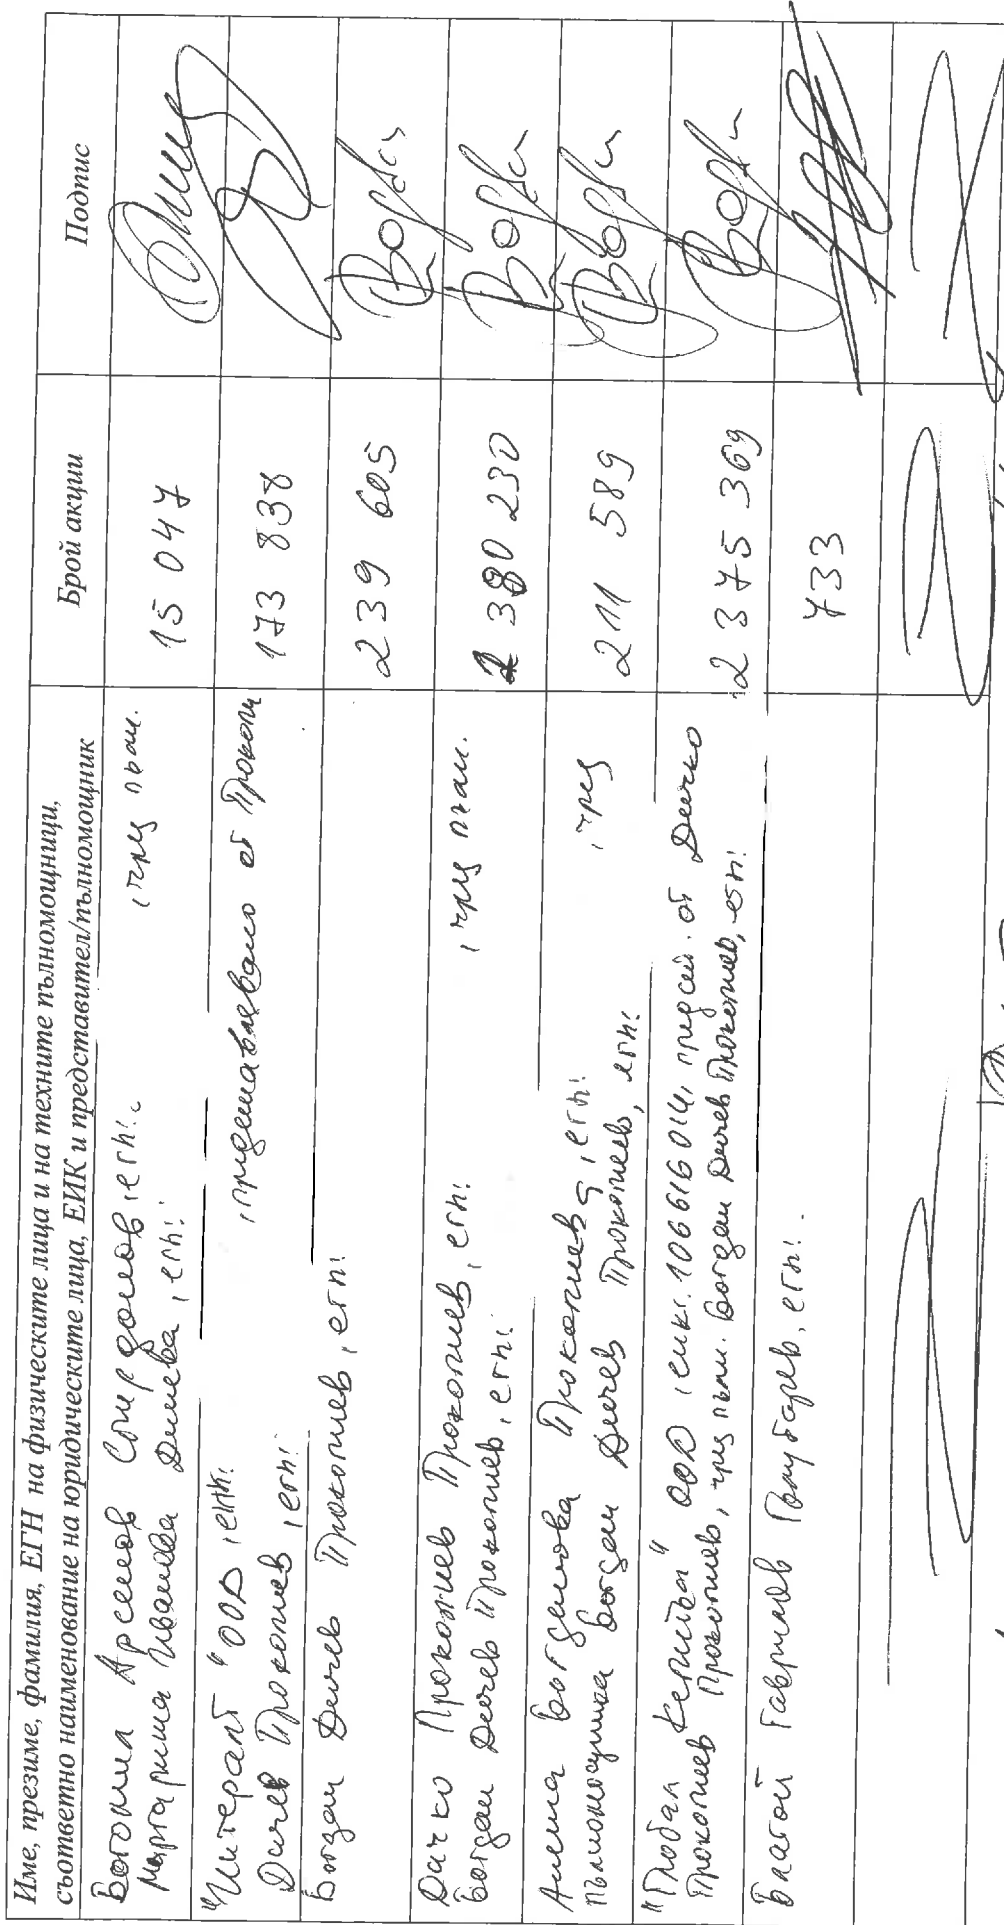 Име, презиме, фамилия, ЕГН на физическите лица и на техните пълномощници,
съответно наименование на юридическите лица, ЕИК и представител/пълномощник
Брой акции
Подпис
Богомил Арсенов Спиридонов, егн:
, чрез пълм.
Маргарита Иванова Динева, егн:
15 047
"Интерапт" ООД, еик:
, представлявано от Прокопи
Дичев Прокопиев, егн:
173 838
Богдан Дичев Прокопиев, егн:
239 605
Дичко Прокопиев Прокопиев, егн:
, чрез пълм.
Богдан Дичев Прокопиев, егн:
380 230
Анета Богданова Прокопиева, егн:
, чрез
пълномощника Богдан Дичев Прокопиев, егн:
211 589
"Глобал Кепитъл" ООД, еик: 106616014, предст. от Дичко
Прокопиев Прокопиев, чрез пълм. Богдан Дичев Прокопиев, егн:
2 375 369
Благой Гаврилов
, егн:
733